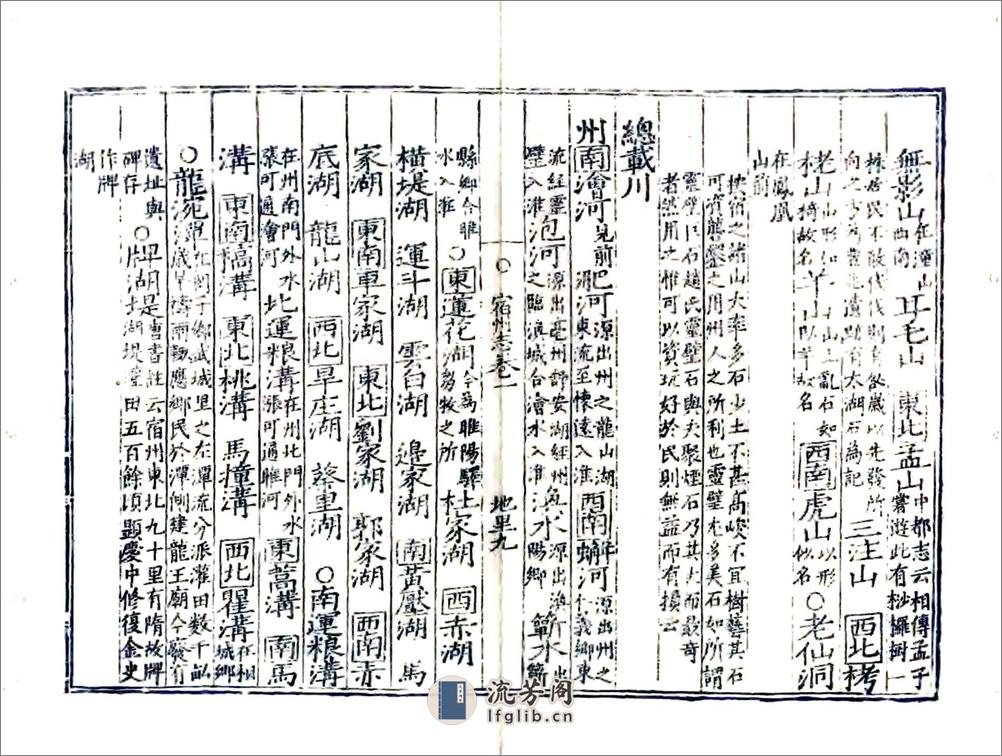 無影山在潼山西南 耳毛山 東北孟山中都志云相傳孟子嘗遊此有桫欏樹一
株居民不敢伐伐則有歲以先發所向之方為豐北遺蹟有太湖石為記 三注山 西北栲
老山山形如栲故名 羊山山上亂石如以羊故名 西南虎山以形似名 ○老仙洞
在鳳凰山前
按宿之諸山大率多石少土不甚高峻不宜樹藝其石
可資礱鑿之用州人之所利也靈璧尤多美石如所謂
靈璧巨石趙氏靈璧石與夫聚煙石乃其大而最奇
者然用之惟可以資玩好於民則無益而有損云
總載川
州南澮河見前 淝河源出州之龍山湖東流至懷遠入淮 西南蝌河源出州之仁義鄉東
流經靈璧入淮 泡河源出亳州舒安湖經州之臨渙城合澮水入淮 渙水源出渙陽鄉 蘄水出蘄
○ 宿州志卷一 地里九
縣鄉合睢水入淮 ○東蓮花湖今為睢陽驛芻牧之所 杜家湖 西赤湖
橫堤湖 運斗湖 雲白湖 邉家湖 南黃壓湖 馬
家湖 東南車家湖 東北劉家湖 郭家湖 西南赤
底湖 龍山湖 西北旱庄湖 蔡里湖 ○南運粮溝
在州南門外水漲可通澮河 北運粮溝在州北門外水漲可通睢河 東蒿溝 南馬
溝 東南槁溝 東北桃溝 馬撞溝 西北瞿溝在相城鄉
○龍泥潭在閔子鄉武城里之左潭流分派灌田數十畝歲旱禱雨輒應鄉民於潭側建龍王廟今發有
遺址與碑存 ○牌湖堤唐書註云宿州東北九十里有隋故牌湖堤灌田五百餘頃顯慶中修復金史
作牌湖
流芳阁
lfglib.cn